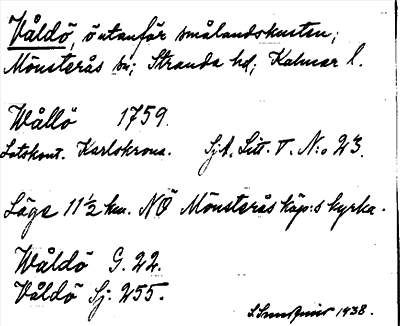 Våldö, ö utanför smålandskusten;
Mönsterås sn; Stranda hd; Kalmar l.
Wållö 1759.
Lotskont. Karlskrona. Sjk. Litt. V. N:o 23.
Läge 11½ km. NÖ Mönsterås köp:s kyrka.
Wåldö G. 22.
Våldö Sj. 255.
1938.